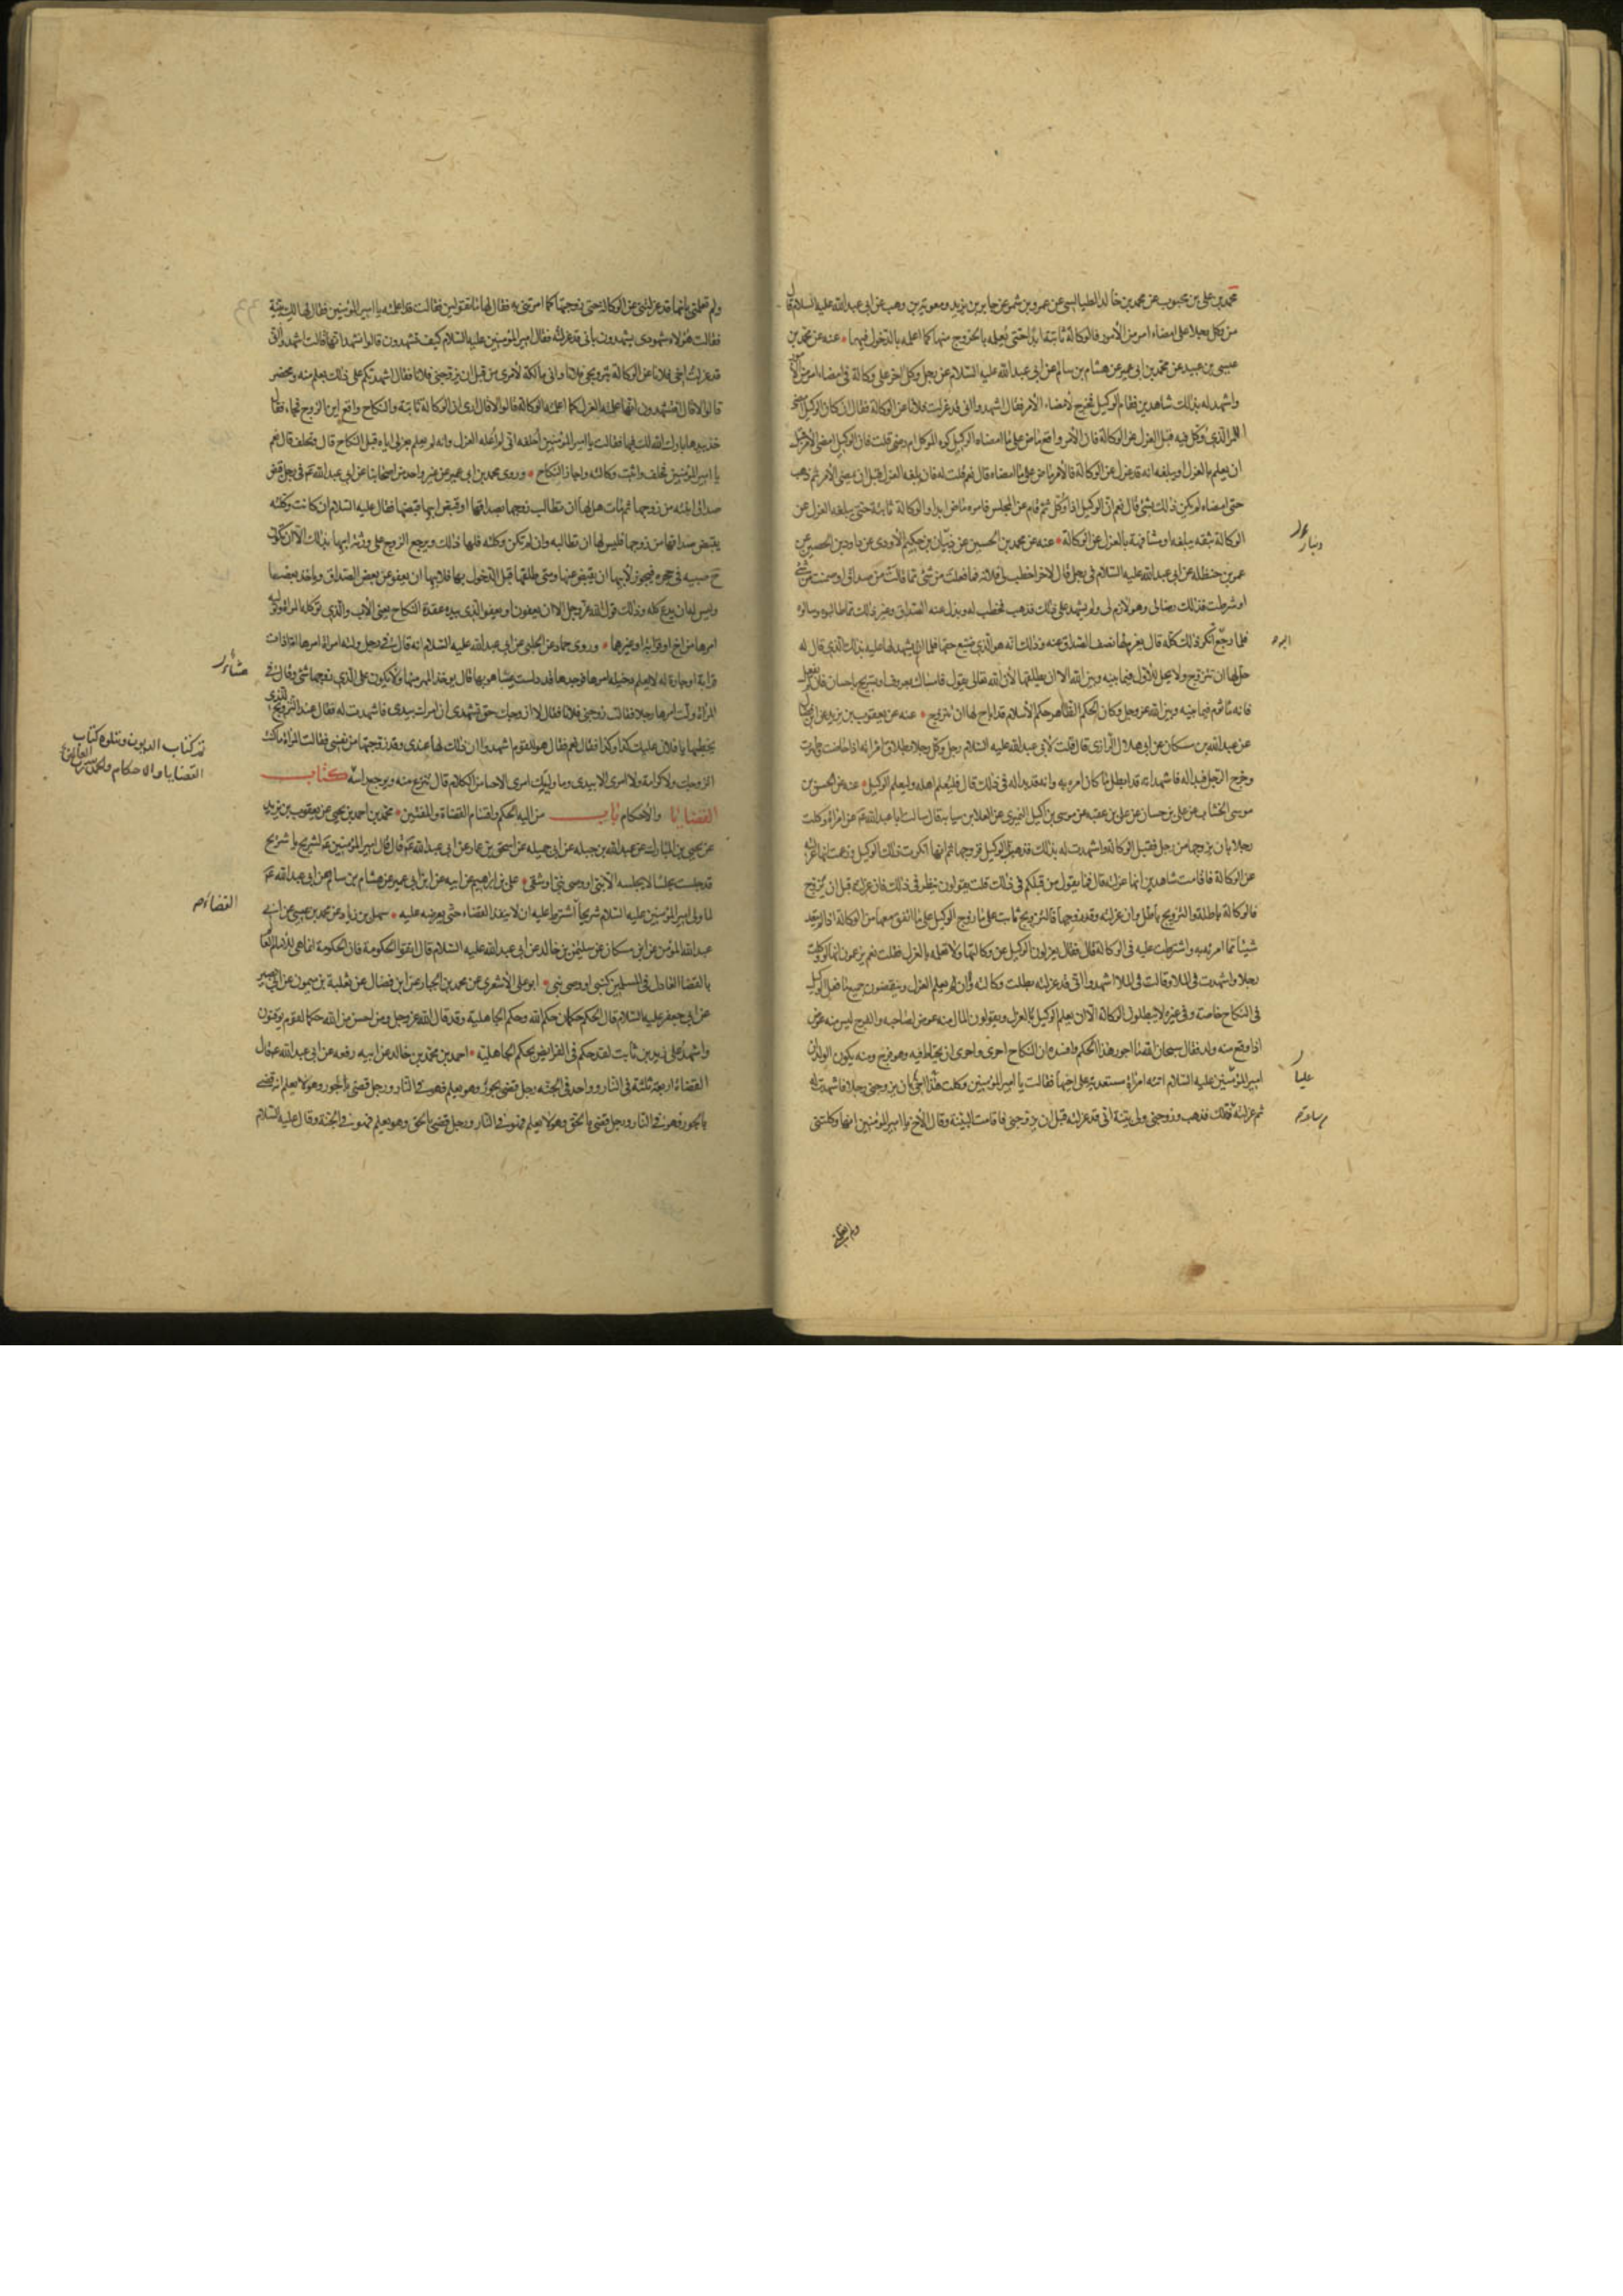 محمد بن علی بن محبوب عن محمد بن خالد الطیالسی عن عمرو بن شمر عن جابر بن یزید و معویة بن وهب عن ابی عبد الله علیه السلام قال
من وکل رجلا علی امضاء امر من الأمور فالوکالة ثابتة ابدا حتی یعلمه بالخروج منها کما اعلمه بالدخول فیها عنه عن محمد بن
عیسی بن عبید عن محمد بن ابی عمیر عن هشام بن سالم عن ابی عبد الله علیه السلام عن رجل وکل اخر علی وکالة فی امضاء امر من الأمور
واشهد له بذلک شاهدین فقام الوکیل فخرج لامضاء الأمر فقال اشهدوا انی قد عزلت فلانا عن الوکالة فقال ان کان الوکیل امضی
الامر الذی وکل فیه قبل العزل عن الوکالة فان الأمر واقع ماض علی ما امضاه الوکیل کره الموکل ام رضی قلت فان الوکیل امضی الأمر قبل
ان یعلم بالعزل او یبلغه انه قد عزل عن الوکالة فالأمر ماض علی ما امضاه قال نعم قلت له فان بلغه العزل قبل ان یمضی الأمر ثم ذهب
حتی امضاه لم یکن ذلک بشئ قال نعم ان الوکیل اذا وکل ثم قام عن المجلس فامره ماض ابدا والوکالة ثابتة حتی یبلغه العزل عن
الوکالة بثقه یبلغه او یشافهه بالعزل عن الوکالة عنه عن محمد بن الحسین عن ذبیان بن حکیم الأودی عن داود بن الحصین عن
عمر بن حنظله عن ابی عبد الله علیه السلام فی رجل قال لاخر اخطب لی فلانة فما فعلت من شئ مما قالت من صداق او ضمنت من شئ
او شرطت فذلک رضا لی وهو لازم لی ولم یشهد علی ذلک فذهب فخطب له وبذل عنه الصداق وغیر ذلک مما طالبوه وسالوه
فلما رجع انکر ذلک کله قال یغرم لها نصف الصداق عنه وذلک انه هو الذی ضیع حقها فلما ان لم یشهد لها علیه بذلک الذی قال له
حل لها ان تتزوج ولا یحل للأول فیما بینه وبین الله الا ان یطلقها لأن الله تعالی یقول فامساک بمعروف او تسریح باحسان فان لم یفعل
فانه ماثوم فیما بینه وبین الله عز وجل وکان الحکم الظاهر حکم الأسلام قد اباح لها ان تتزوج عنه عن یعقوب بن یزید عن
عن عبد الله بن مسکان عن ابی هلال الرازی قال قلت لأبی عبد الله علیه السلام رجل وکل رجلا بطلاق امراته اذا حاضت وطهرت
وخرج الرجل فبدا له فاشهد انه قد ابطل ما کان امره به وانه قد بدا له فی ذلک قال فلیعلم اهله ولیعلم الوکیل عنه عن الحسن بن
موسی الخشاب عن علی بن حسان عن علی بن عقبه عن موسی بن اکیل النمیری عن العلا بن سیابه قال سالت ابا عبد الله عن امراة وکلت
رجلا بان یزوجها من رجل فقبل الوکالة واشهدت له بذلک فذهب الوکیل فزوجها ثم انها انکرت ذلک الوکیل وزعمت انها عزلته
عن الوکالة فاقامت شاهدین انها عزلته قال فما یقول من قبلکم فی ذلک قلت یقولون ینظر فی ذلک فان عزلته قبل ان یزوج
فالوکالة باطلة والتزویج باطل وان عزلته وقد زوجها فالتزویج ثابت علی ما زوج الوکیل علی ما اتفق معها من الوکالة اذا لم یتعد
شیئا مما امر به واشترطت علیه فی الوکالة قال فقال یعزلون الوکیل عن وکالتها ولا تعلمه بالعزل فقلت نعم یزعمون انها لو وکلت
رجلا واشهدت فی الملا وقالت فی الملا اشهدوا انی قد عزلته بطلت وکالته وان لم یعلم العزل وینقضون جمیع ما فعل الوکیل
فی النکاح خاصة وفی غیره لا یبطلون الوکالة الا ان یعلم الوکیل بالعزل ویقولون المال منه عوض لصاحبه والفرج لیس منه عوض
اذا وقع منه ولد فقال سبحان الله ما اجور هذا الحکم وافسده ان النکاح احری واحری ان یحتاط فیه وهو فرج ومنه یکون الولد ان
امیر المؤمنین علیه السلام اتته امراة مستعدیة علی اخیها فقالت یا امیر المؤمنین وکلت هذا اخی بان یزوجنی رجلا فاشهدت له
ثم عزلته فذهب وزوجنی ولی بینة انی قد عزلته قبل ان یزوجنی فاقامت البینة وقال الأخ یا امیر المؤمنین انها وکلتنی
ولم تعلمنی بانها قد عزلتنی عن الوکالة حتی زوجتها کما امرتنی به فقال لها ما تقولین فقالت قد اعلمته یا امیر المؤمنین فقال لها الک بینة
فقالت هؤلاء شهودی یشهدون بانی قد عزلته فقال امیر المؤمنین علیه السلام کیف تشهدون قالوا نشهد انها قالت اشهدوا انی
قد عزلت اخی فلانا عن الوکالة بتزویجی فلانا وانی مالکة لأمری من قبل ان یزوجنی فلانا فقال اشهدتکم علی ذلک بعلم منه ومحضر
قالوا لا قال فتشهدون انها اعلمته العزل کما اعلمته الوکالة قالوا لا قال اری ان الوکالة ثابتة والنکاح واقع این الزوج فجاء فقال
خذ بیدها بارک الله لک فیها فقالت یا امیر المؤمنین احلفه انی لم اعلمه العزل وانه لم یعلم بعزلی ایاه قبل النکاح قال وتحلف قال نعم
یا امیر المؤمنین فحلف واثبت وکالته واجاز النکاح وروی محمد بن ابی عمیر عن غیر واحد من اصحابنا عن ابی عبد الله فی رجل قبض
صداق ابنته من زوجها ثم مات هل لها ان تطالب زوجها بصداقها او قبض ابیها قبضها فقال علیه السلام ان کانت وکلته
یقبض صداقها من زوجها فلیس لها ان تطالبه وان لم تکن وکلته فلها ذلک ویرجع الزوج علی ورثة ابیها بذلک الا ان تکون
ح صبیه فی حجره فیجوز لأبیها ان یقبض عنها ومتی طلقها قبل الدخول بها فلابیها ان یعفو عن بعض الصداق ویاخذ بعضها
ولیس له ان یدع کله وذلک قول الله عز وجل الا ان یعفون او یعفو الذی بیده عقدة النکاح یعنی الأب والذی توکله المراة وتولیه
امرها من اخ او قرابة او غیرهما وروی حماد عن الحلبی عن ابی عبد الله علیه السلام انه قال فی رجل ولته امراة امرها اما ذات
قرابة او جارة له لا یعلم دخیله امرها فوجدها قد دلست عیبا هو بها قال یوخذ المهر منها ولا یکون علی الذی زوجها شئ وقال فی
امراة ولت امرها رجلا فقالت زوجنی فلانا فقال لا ازوجک حتی تشهدی ان امرک بیدی فاشهدت له فقال عند التزویج للذی
یخطبها یا فلان علیک کذا وکذا فقال نعم فقال هو للقوم اشهدوا ان ذلک لها عندی وقد زوجتها من نفسی فقالت المراة ما کنت
اتزوجک ولا کرامة ولا امری الا بیدی وما ولیتک امری الا حیاء من الکلام قال تنزع منه ویوجع راسه کتاب
القضایا والأحکام باب من الیه الحکم واقسام القضاة والمفتین محمد بن احمد بن یحیی عن یعقوب بن یزید
عن یحیی بن المبارک عن عبد الله بن جبله عن ابی جمیله عن اسحق بن عمار عن ابی عبد الله قال قال امیر المؤمنین لشریح یا شریح
قد جلست مجلسا لا یجلسه الا نبی او وصی نبی او شقی علی بن ابراهیم عن ابیه عن ابن ابی عمیر عن هشام بن سالم عن ابی عبد الله
لما ولی امیر المؤمنین علیه السلام شریحا اشترط علیه ان لا ینفذ القضاء حتی یعرضه علیه سهل بن زیاد عن محمد بن عیسی عن ابی
عبد الله المؤمن عن ابن مسکان عن سلیمن بن خالد عن ابی عبد الله علیه السلام قال اتقوا الحکومة فان الحکومة انما هی للأمام العالم
بالقضا العادل فی المسلمین کنبی او وصی نبی ابو علی الأشعری عن محمد بن عبد الجبار عن ابن فضال عن ثعلبة بن میمون عن ابی بصیر
عن ابی جعفر علیه السلام قال الحکم حکمان حکم الله وحکم الجاهلیة وقد قال الله عز وجل ومن احسن من الله حکما لقوم یوقنون
واشهد علی زید بن ثابت لقد حکم فی الفرایض بحکم الجاهلیة احمد بن محمد بن خالد عن ابیه رفعه عن ابی عبد الله قال
القضاة اربعة ثلثة فی النار وواحد فی الجنة رجل قضی بجور وهو یعلم فهو فی النار ورجل قضی بالجور وهو لا یعلم انه قضی
بالجور فهو فی النار ورجل قضی بالحق وهو لا یعلم فهو فی النار ورجل قضی بالحق وهو یعلم فهو فی الجنة وقال علیه السلام
تم کتاب الدیون ویتلوه کتاب
القضایا والاحکام والحمد لله رب العالمین